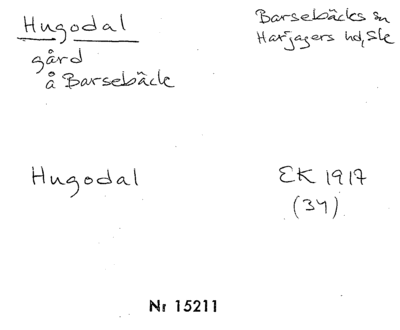 Hugodal
Barsebäcks sn
gård
Harjagers hd, Ske
å Barsebäck
Hugodal
EK 1917
(34)
Nr 15211